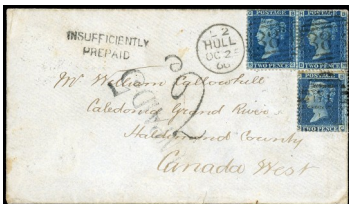 INSUFFICIENTLY
PREPAID
L 2
HULL
OC 25
POSTAGE
TWO PENCE
POSTAGE
TWO PENCE
POSTAGE
TWO PENCE
Mr William
Caledonia Grand River
Haldimand County
Canada West